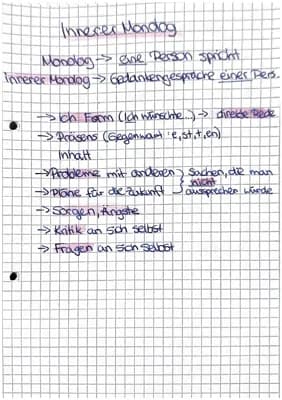 Innerer Monolog
Monolog -> eine Person spricht
Innerer Monolog -> Gedankengespräche einer Pers.
-> Ich Form (Ich wünschte...) -> direkte Rede
-> Präsens (Gegenwart: e, st, t, en)
Inhalt
-> Probleme mit anderen } Sachen, die man
nicht
-> Pläne für die Zukunft } aussprechen würde
-> Sorgen, Ängste
-> Kritik an sich selbst
-> Fragen an sich selbst